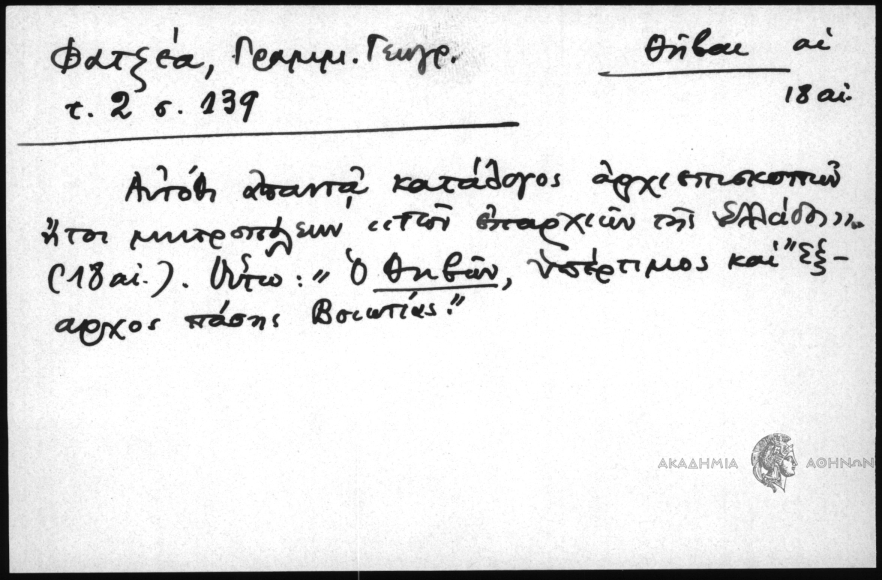 Φατζέα, Γραμμ. Γεωγρ.
τ. 2 σ. 139
Θῆβαι αἱ
18 αἰ.
Αὐτόθι ἀπαντᾷ κατάλογος ἀρχιεπισκοπῶν
ἤτοι μητροπόλεων "τῶν ἐπαρχιῶν τῆς Ἑλλάδος".
(18 αἰ.). Οὕτω: "Ὁ Θηβῶν, ὑπέρτιμος καὶ Ἔξ-
αρχος πάσης Βοιωτίας."
ΑΚΑΔΗΜΙΑ ΑΘΗΝΩΝ